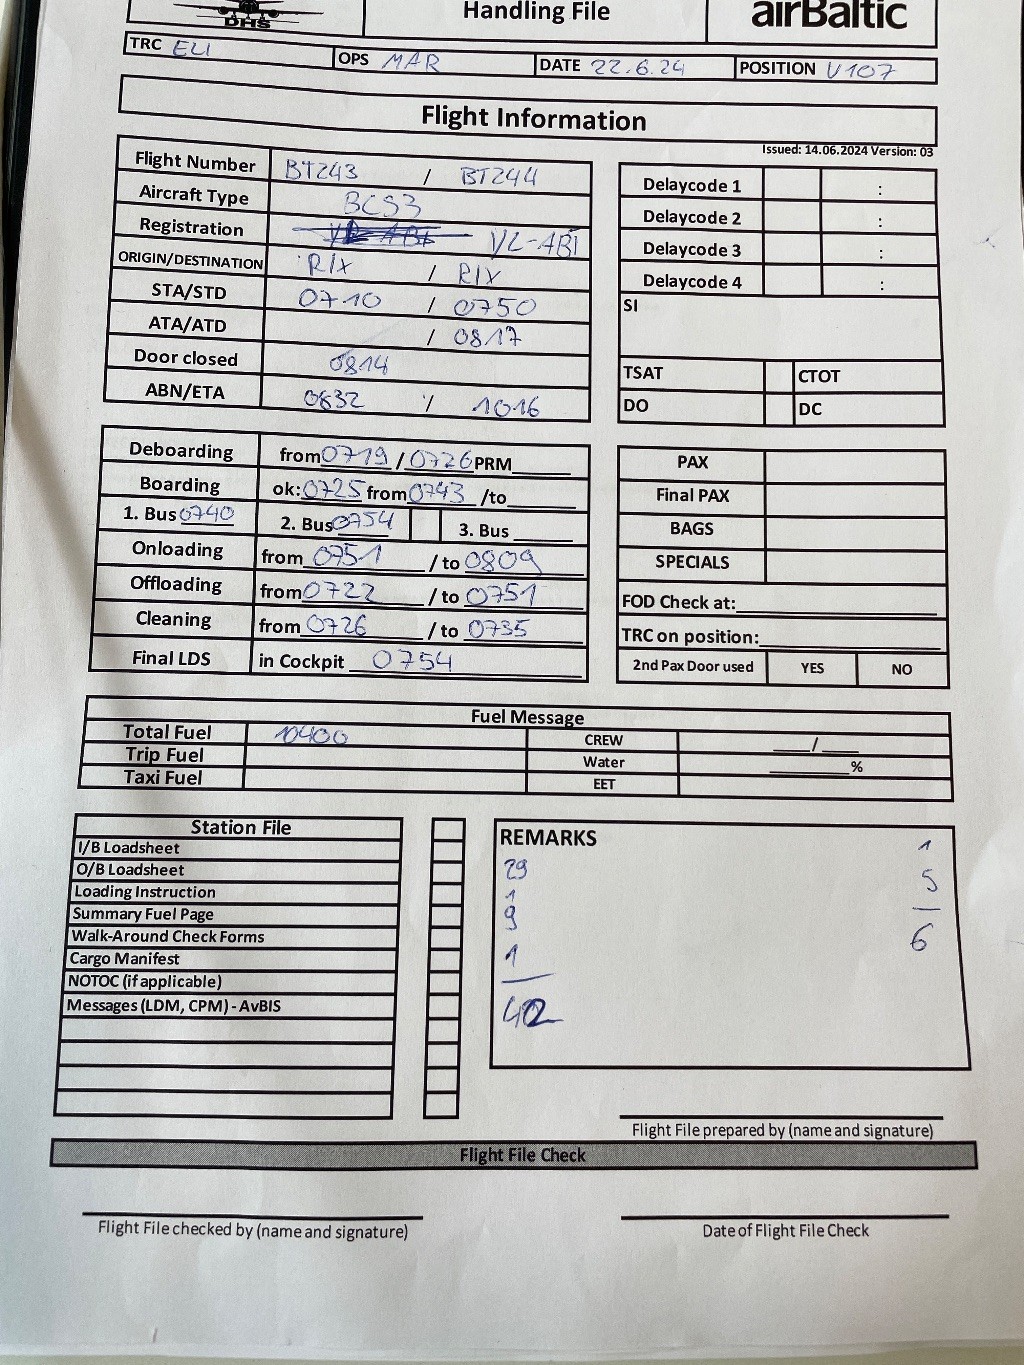 DHS
Handling File
airBaltic
TRC ELI OPS MAR DATE 22.6.24 POSITION V107
Flight Information
Issued: 14.06.2024 Version: 03
Flight Number BT243 / BT244
Aircraft Type BCS3
Registration YL-ABI
ORIGIN/DESTINATION RIX / RIX
STA/STD 0710 / 0750
ATA/ATD / 0817
Door closed 0814
ABN/ETA 0832 / 1016
Delaycode 1 :
Delaycode 2 :
Delaycode 3 :
Delaycode 4 :
SI
TSAT CTOT
DO DC
Deboarding from 0719 / 0726 PRM
Boarding ok: 0725 from 0743 /to
1. Bus 0740 2. Bus 0754 3. Bus
Onloading from 0751 / to 0809
Offloading from 0722 / to 0751
Cleaning from 0726 / to 0735
Final LDS in Cockpit 0754
PAX
Final PAX
BAGS
SPECIALS
FOD Check at:
TRC on position:
2nd Pax Door used YES NO
Fuel Message
Total Fuel 10400 CREW /
Trip Fuel Water %
Taxi Fuel EET
Station File
I/B Loadsheet
O/B Loadsheet
Loading Instruction
Summary Fuel Page
Walk-Around Check Forms
Cargo Manifest
NOTOC (if applicable)
Messages (LDM, CPM) - AvBIS
REMARKS
29
1
9
1
42
1
5
6
Flight File prepared by (name and signature)
Flight File Check
Flight File checked by (name and signature)
Date of Flight File Check